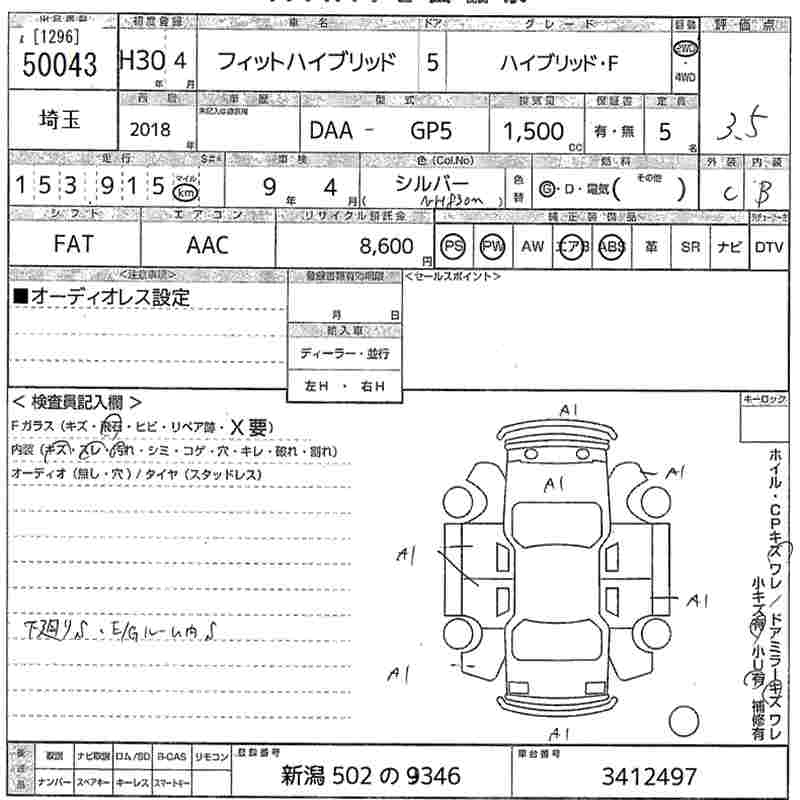 出品番号 初度登録 車名 ドア グレード 駆動 評価点
[1296]
50043 H30年 4月 フィットハイブリッド 5 ハイブリッド・F 2WD・4WD 3.5
埼玉
西暦 車歴 型式 排気量 保証書 定員
2018年 DAA - GP5 1,500cc 有・無 5名
走行 車検 色(Col.No) 色替 燃料 外装 内装
153915 マイル km 9年 4月 シルバー (NH830m) G・D・電気( その他 ) C B
シフト エアコン リサイクル預託金 純正装備品
FAT AAC 8,600円 PS PW AW エアB ABS 革 SR ナビ DTV
<注意事項> 登録書類有効期限 <セールスポイント>
■オーディオレス設定
月 日
輸入車
ディーラー・並行
左H ・ 右H
< 検査員記入欄 > キーロック
Fガラス (キズ・飛石・ヒビ・リペア跡・X要)
内装 (キズ・スレ・汚れ・シミ・コゲ・穴・キレ・破れ・割れ)
オーディオ (無し・穴) / タイヤ (スタッドレス)
下廻りS・E/Gルーム内S
A1
A1
A1
A1
A1
A1
A1
ホイル・CPキズワレ / ドアミラーキズワレ
小キズ有 / 小U有 補修有
後送品 取説 ナビ取説 ロム/SD B-CAS リモコン 登録番号 車台番号
ナンバー スペアキー キーレス スマートキー 新潟 502 の 9346 3412497